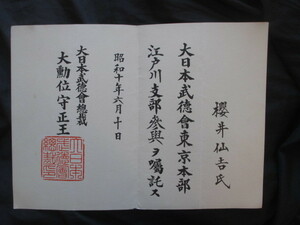 櫻井仙吉氏
大日本武德會東京本部
江戸川支部參與ヲ囑託ス
昭和十年六月十日
大日本武德會總裁
大勳位守正王